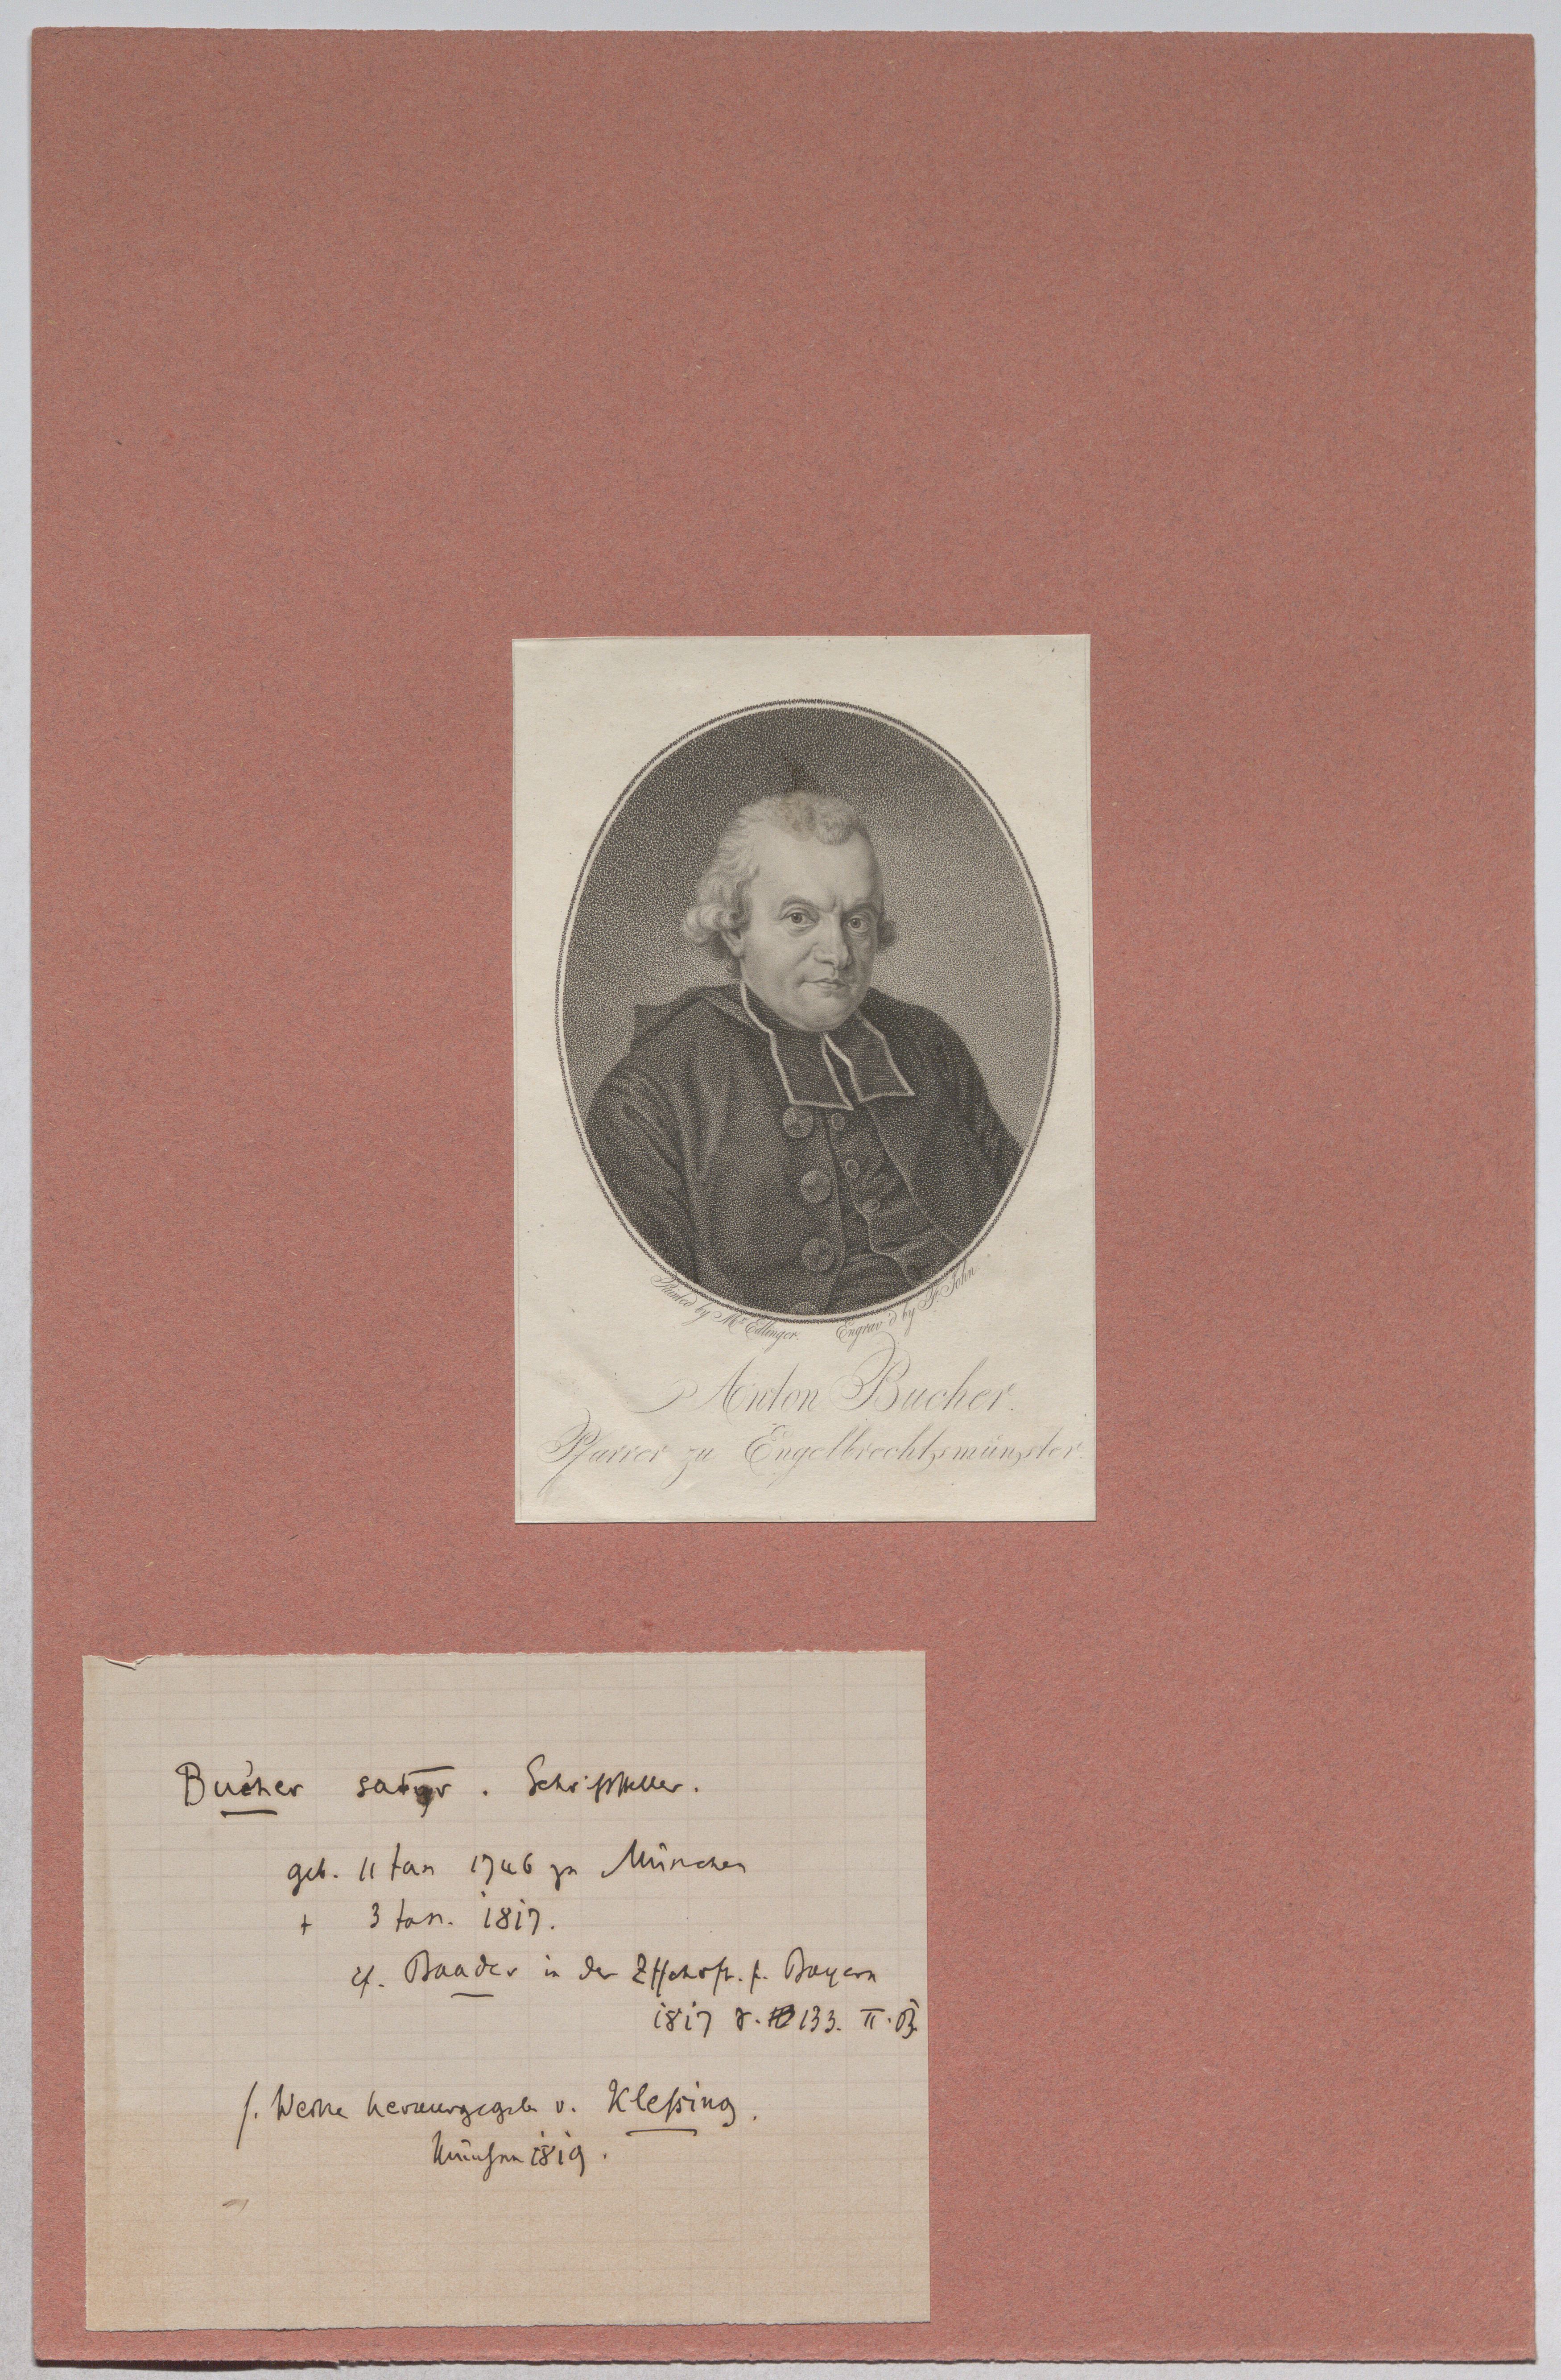 Painted by Mr Edlinger. Engrav'd by F. John.
Anton Bucher.
Pfarrer zu Engelbrechtsmünster.
Bucher satyr. Schriftsteller.
geb. 11 Jan 1746 zu München
+ 3 Jan. 1817.
cf. Baader in der Ztschrft. f. Bayern
1817 133. II. B.
s. Werke herausgegeb v. Kleßing.
München 1819.